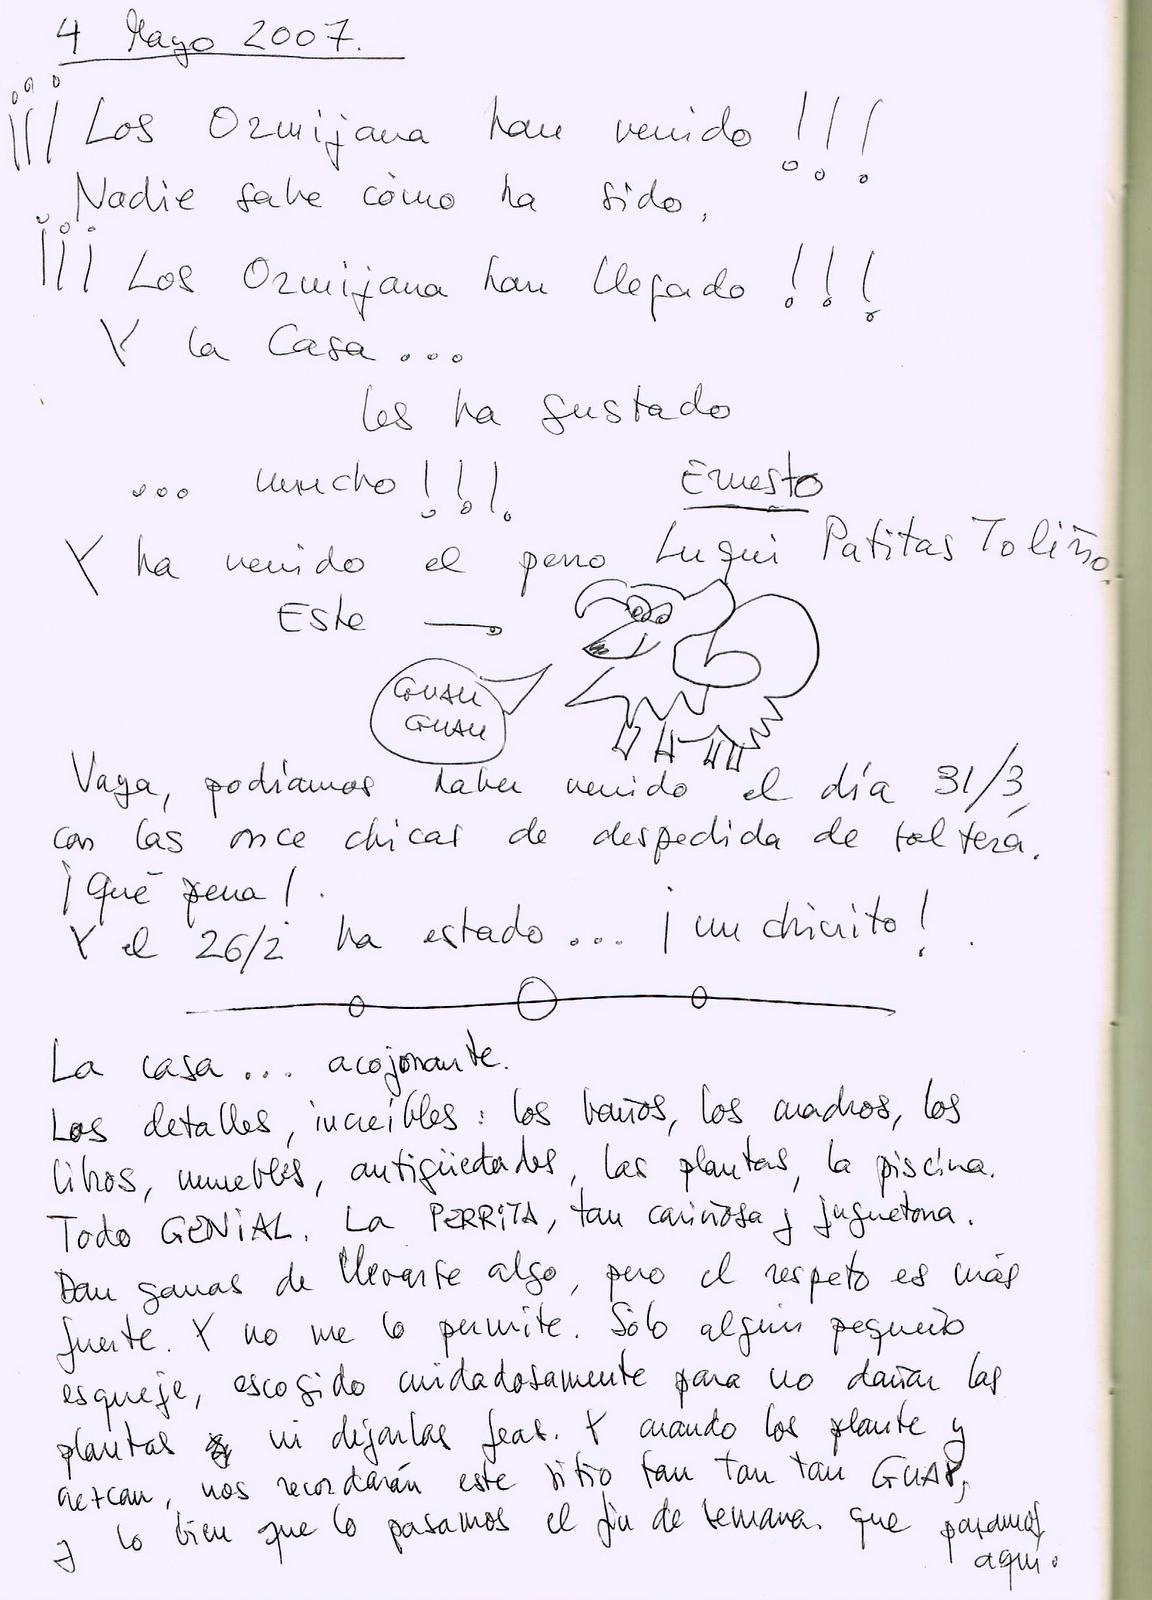 4 Mayo 2007.
¡¡¡ Los Ozmijana han venido !!!
Nadie sabe cómo ha sido,
¡¡¡ Los Ozmijana han llegado !!!
Y la Casa ...
les ha gustado
... mucho !!!
Ernesto
Y ha venido el perro Luqui Patitas Toliño.
Este →
GUAU
GUAU
Vaya, podíamos haber venido el día 31/3,
con las once chicas de despedida de soltera.
¡Qué pena!.
Y el 26/2 ha estado ... ¡un chinito!.
La casa ... acojonante.
Los detalles, increíbles: los baños, los cuadros, los
libros, muebles, antigüedades, las plantas, la piscina.
Todo GENiAL. La PERRiTA, tan cariñosa y juguetona.
Dan ganas de llevarse algo, pero el respeto es más
fuerte. Y no me lo permite. Sólo algún pequeño
esqueje, escogido cuidadosamente para no dañar las
plantas ni dejarlas feas. Y cuando los plante y
crezcan, nos recordarán este sitio tan tan tan GUAY,
y lo bien que lo pasamos el fin de semana que pasamos
aquí.